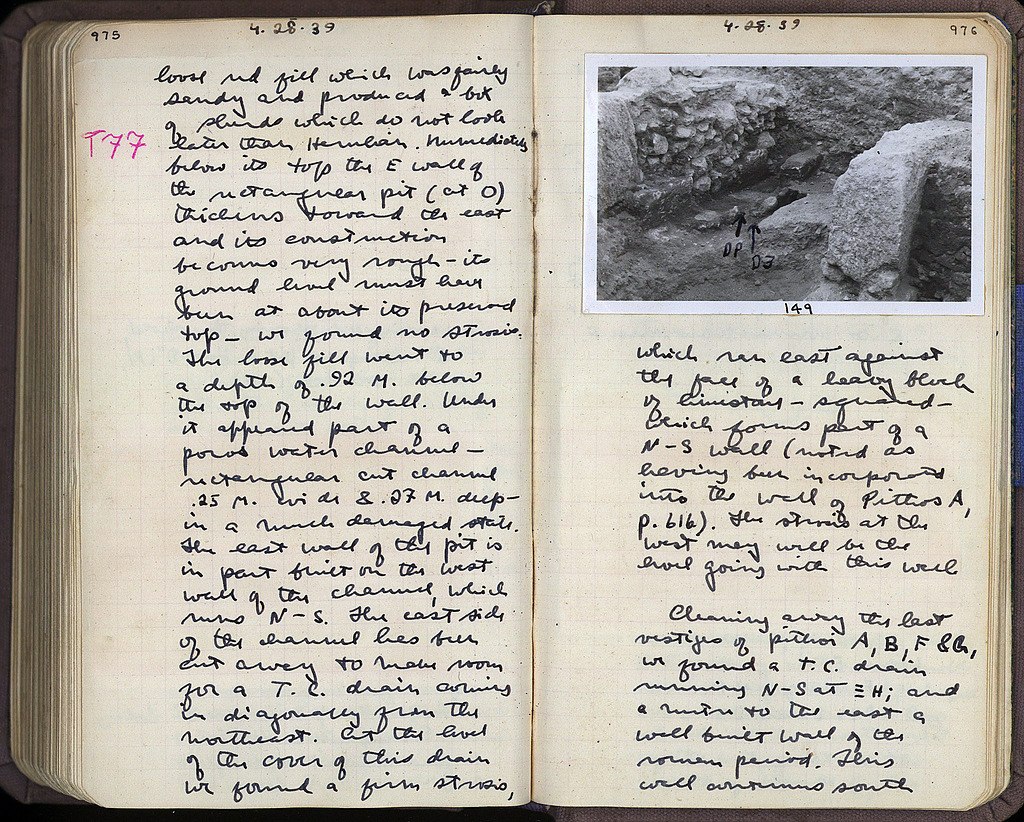 975
4.28.39
loose red fill which was fairly
sandy and produced a bit
of sherds which do not look
later than Herulian. Immediately
T77
below its top the E wall of
the rectangular pit (at O)
thickens toward the east
and its construction
becomes very rough – its
ground level must have
been at about its preserved
top – we found no strosis.
The loose fill went to
a depth of .92 M. below
the top of the wall. Under
it appeared part of a
poros water channel –
rectangular cut channel
.25 M. wide & .27 M. deep –
in a much damaged state.
The east wall of the pit is
in part built on the west
wall of the channel, which
runs N–S. The east side
of the channel has been
cut away to make room
for a T.C. drain coming
in diagonally from the
northeast. At the level
of the cover of this drain
we found a firm strosis,
4.28.39
976
DP
149
which ran east against
the face of a heavy block
of limestone – squared –
which forms part of a
N–S wall (noted as
having been incorporated
into the wall of Pithos A,
p. 616). The strosis at the
west may well be the
level going with this wall
Cleaning away the last
vestiges of pithoi A, B, F & G,
we found a T.C. drain
running N–S at ΞH; and
a metre to the east a
well built wall of the
roman period. This
wall continues south